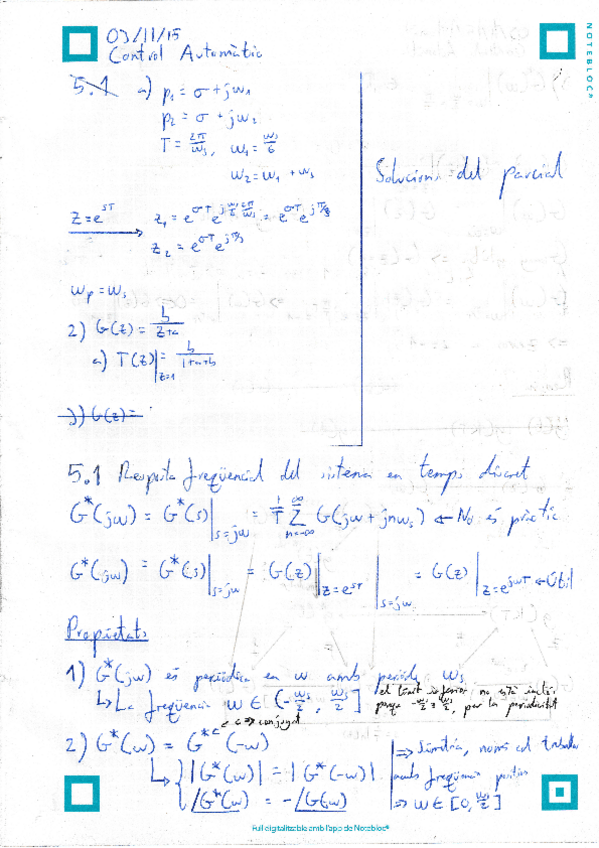 03/11/15
Control Automàtic
NOTEBLOC®
5.1 a) p₁ = σ + jω₁
p₂ = σ + jω₂
T = 2π/ωs, ω₁ = ωs/6
ω₂ = ω₁ + ωs
Solucions del parcial
z = e^{sT} → z₁ = e^{σT} e^{j ωs/6 2π/ωs} = e^{σT} e^{jπ/3}
z₂ = e^{σT} e^{jπ/3}
ωp = ωs
2) G(z) = b/(z+a)
a) T(z)|_{z=1} = b/(1+a+b)
3) G(z) =
5.1 Resposta freqüencial del sistema en temps discret
G*(jω) = G*(s)|_{s=jω} = 1/T Σ_{n=-∞}^{∞} G(jω + jnωs) ← No és pràctic
G*(jω) = G*(s)|_{s=jω} = G(z)|_{z=e^{sT}}|_{s=jω} = G(z)|_{z=e^{jωT}} ← Útil
Propietats
1) G*(jω) és periòdica en ω amb període ωs
↳ La freqüència ω ∈ (-ωs/2, ωs/2] el límit inferior no està inclòs
perquè -ωs/2 = ωs/2, per la periodicitat
c ⇒ conjugat
2) G*(ω) = G*ᶜ(-ω)
↳ { |G*(ω)| = |G*(-ω)|
∠G*(ω) = -∠G(ω)
⇒ Simetria, només cal treballar
amb freqüències positives
⇒ ω ∈ [0, ωs/2]
Full digitalitzable amb l'app de Notebloc®